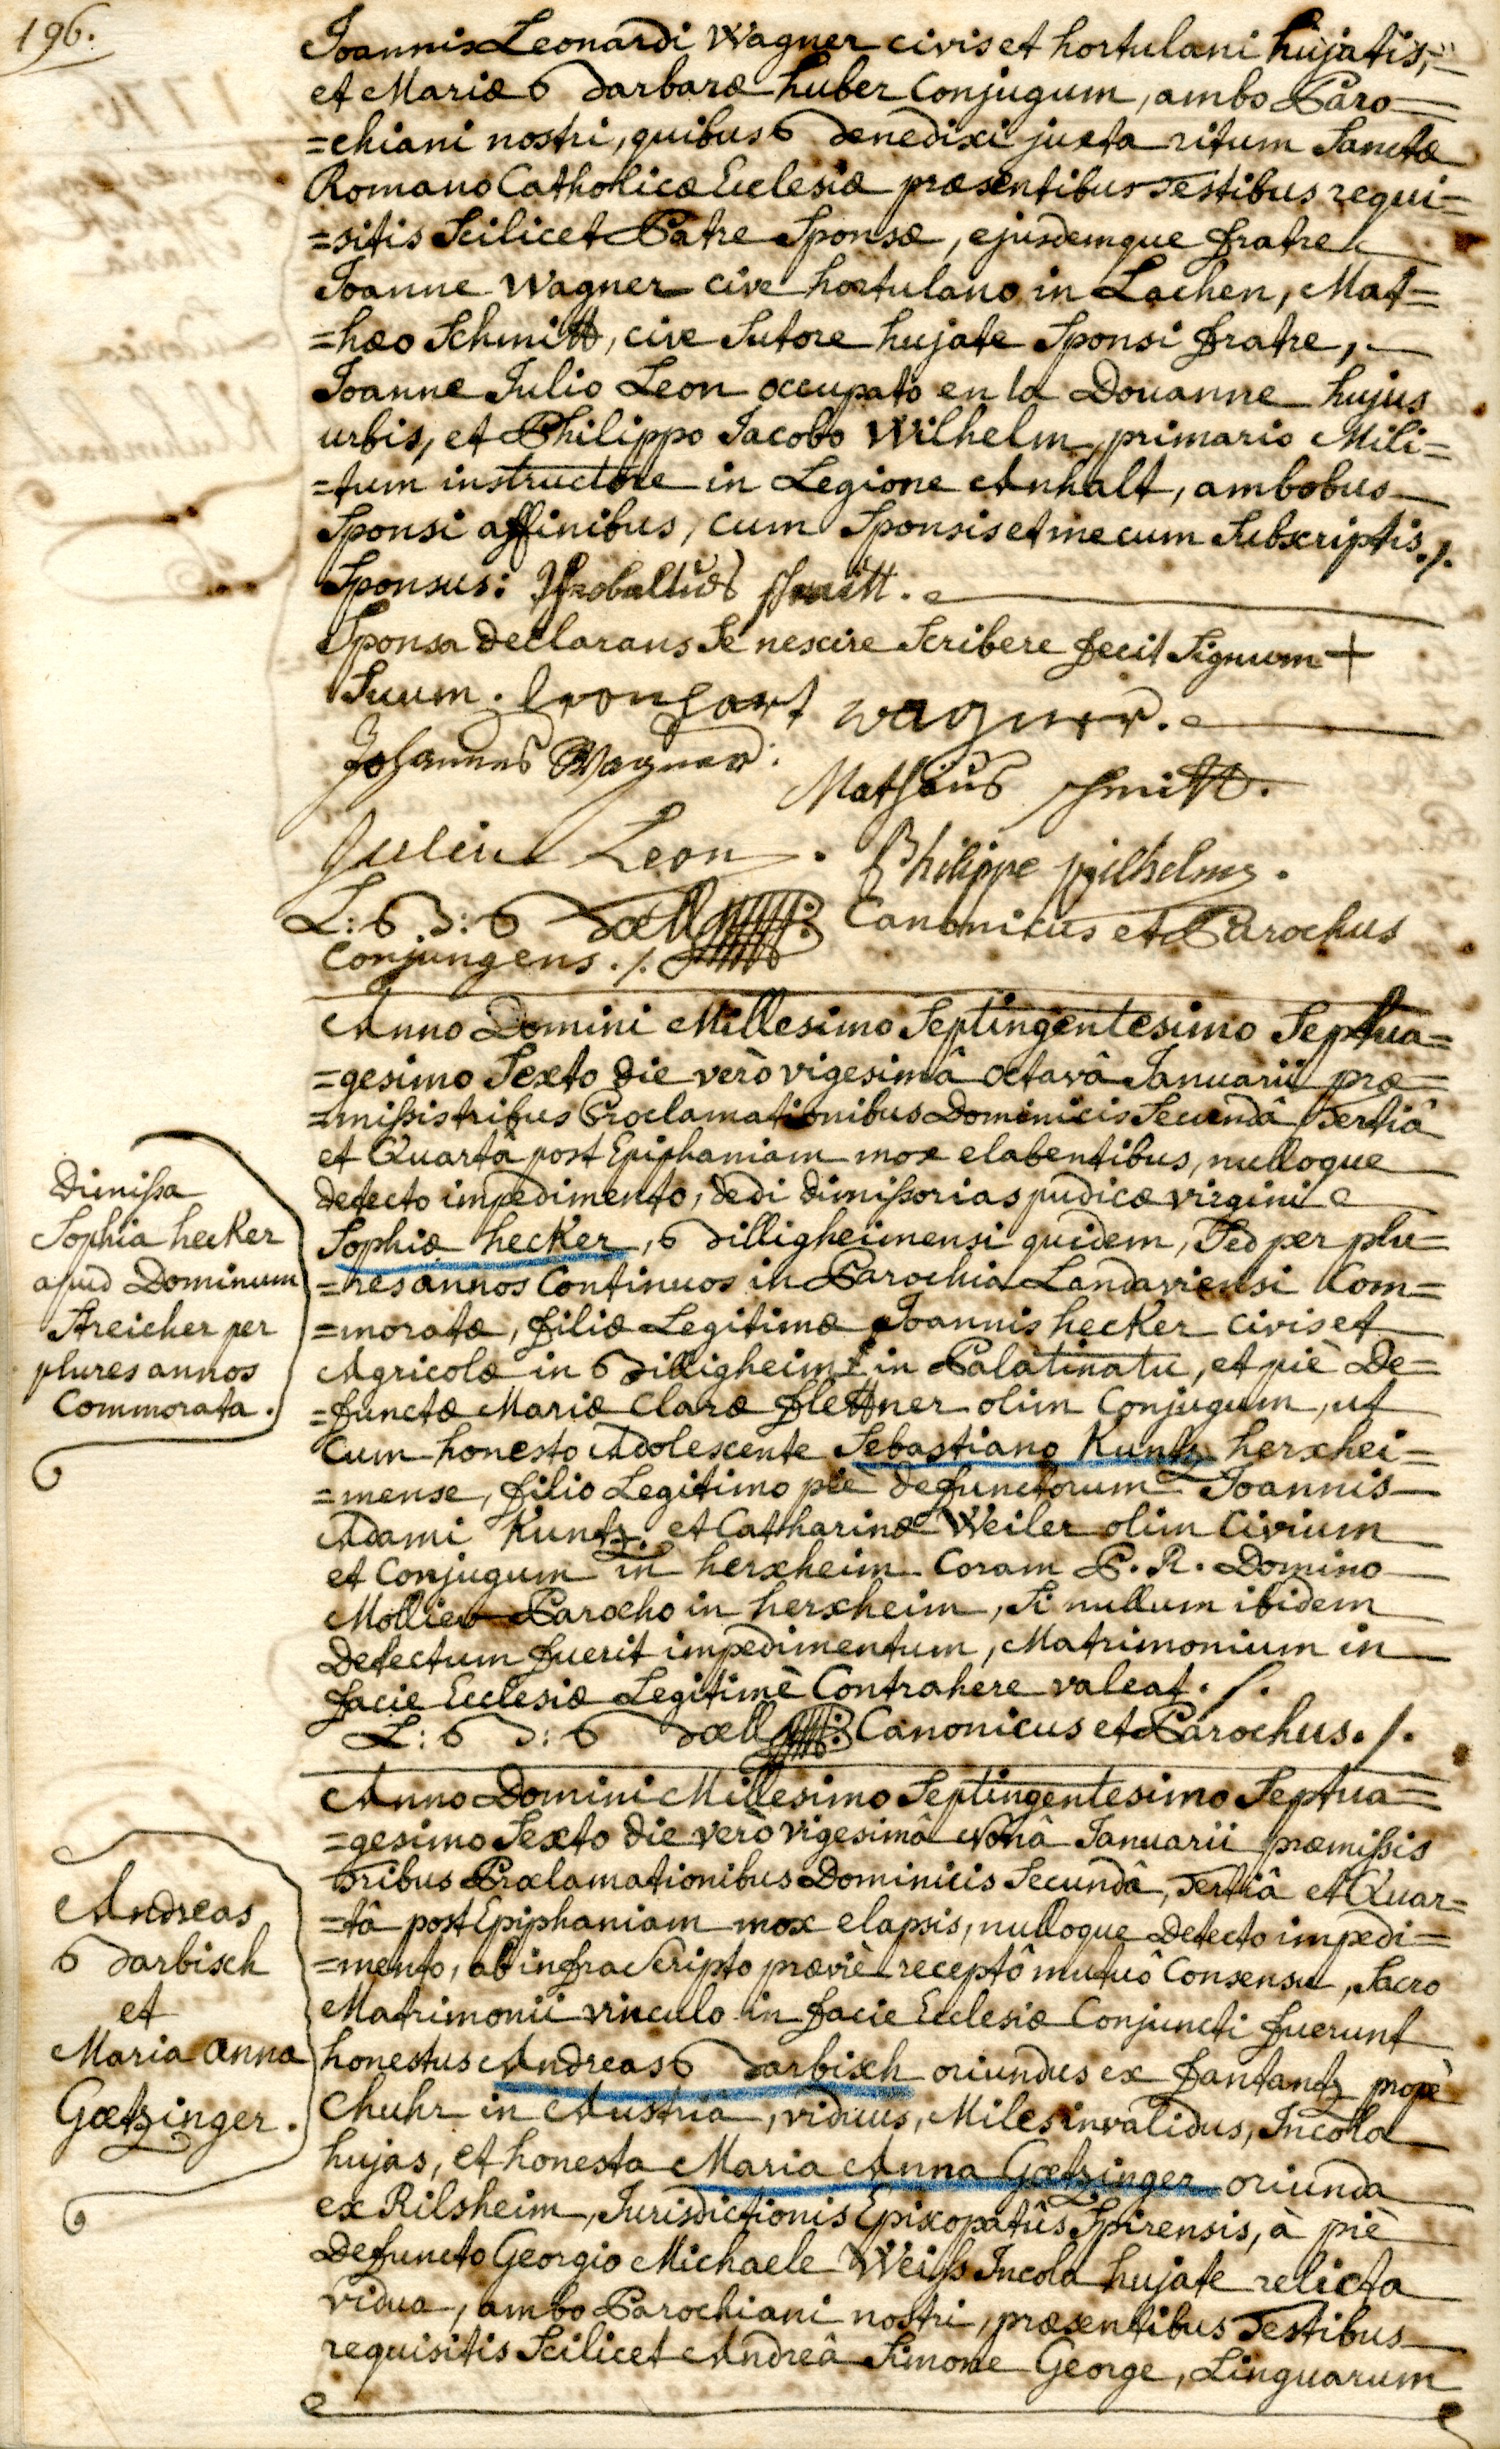 196.
Joannis Leonardi Wagner civis et hortulani hujatis,
et Mariæ Barbaræ Huber Conjugum, ambo Paro=
=chiani nostri, quibus Benedixi juxta ritum Sanctæ
Romano Catholicæ Ecclesiæ præsentibus Testibus requi=
=sitis Scilicet Patre Sponsæ, ejusdemque fratre
Joanne Wagner cive hortulano in Lachen, Mat=
=hæo Schmitt, cive Sutore hujate Sponsi fratre,
Joanne Julio Leon occupato en la Douanne hujus
urbis, et Philippo Jacobo Wilhelm, primario Mili=
=tum instructore in Legione Anhalt, ambobus
Sponsi affinibus, cum Sponsis et mecum Subscriptis ./.
Sponsus: Theobaltus schmitt.
Sponsa declarans Se nescire Scribere fecit Signum +
Suum. leonhart wagner.
Johannes Wagner.
Mathäus schmitt.
Julien Leon.
Philippe wilhelm.
L: B: Boell Canonicus et Parochus
Conjungens ./.
Anno Domini Millesimo Septingentesimo Septua=
=gesimo Sexto die verò vigesimâ octavâ Januarii præ=
=missis tribus Proclamationibus Dominicis Secundâ Tertiâ
et Quartâ post Epiphaniam mox elabentibus, nulloque
detecto impedimento, dedi dimissorias pudicæ virgini
Sophiæ hecker, Billigheimensi quidem, Sed per plu=
=res annos Continuos in Parochia Landaviensi Com=
=moratæ, filiæ Legitimæ Joannis hecker civis et
Agricolæ in Billigheim in Palatinatu, et piè De=
=functæ Mariæ Claræ flettner olim Conjugum, ut
cum honesto Adolescente Sebastiano Kuntz herxhei=
=mense, filio Legitimo piè defunctorum Joannis
Adami Kuntz, et Catharinæ Weiler olim Civium
et Conjugum in herxheim Coram P. R. Domino
Parocho in herxheim, Si nullum ibidem
Detectum fuerit impedimentum, Matrimonium in
facie Ecclesiæ Legitimè Contrahere valeat ./.
L: B: Boell Canonicus et Parochus ./.
Dimissa
Sophia hecker
apud Dominum
Streicher per
plures annos
Commorata.
Anno Domini Millesimo Septingentesimo Septua=
=gesimo Sexto die verò vigesimâ Nonâ Januarii præmissis
Tribus Proclamationibus Dominicis Secundâ, Tertiâ et Quar=
=tâ post Epiphaniam mox elapsis, nulloque Detecto impedi=
=mento, ab infra Scripto præviè receptô mutuô Consensu, Sacro
Matrimonii vinculo in facie Ecclesiæ Conjuncti fuerunt
honestus Andreas Barbisch oriundus ex fantantz propè
Chuhr in Austria, viduus, Miles invalidus, Incola
hujas, et honesta Maria Anna Goetzinger oriunda
ex Rilsheim, Jurisdictionis Episcopatûs Spirensis, à piè
Defuncto Georgio Michaele Weiss Incola hujate relicta
vidua, ambo Parochiani nostri, præsentibus Testibus
requisitis Scilicet Andreâ Simone George, Linguarum
Andreas
Barbisch
et
Maria Anna
Goetzinger.